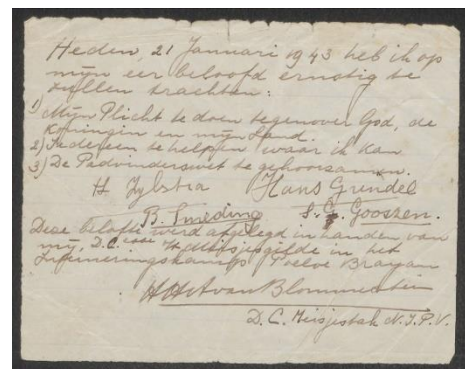 Heden, 21 Januari 1943 heb ik op
mijn eer beloofd ernstig te
zullen trachten:
1) Mijn Plicht te doen tegenover God, de
Koningin en mijn land.
2) Iedereen te helpen waar ik kan
3) De Padvinderswet te gehoorzamen.
H Zylstra Hans Grendel
B. Smeding S. C. Gooszen.
Deze belofte werd afgelegd in handen van
mij, D.C. v/h Meisjesgilde in het
Interneringskamp Poeloe Brayan
van Blommestein
D.C. Meisjestak N.I.P.V.